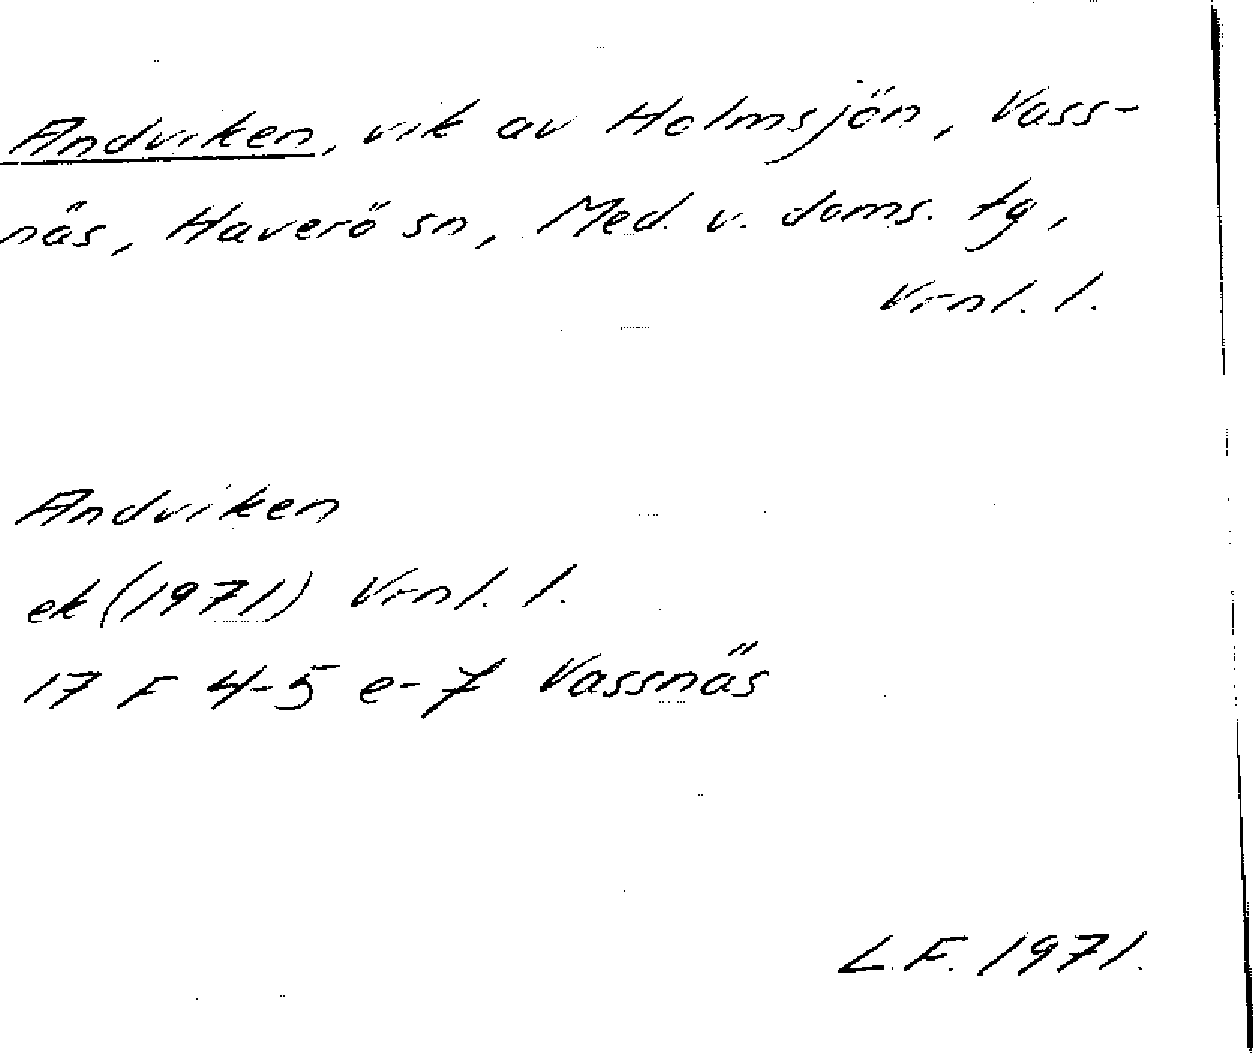 Andviken, vik av Holmsjön, Vass-
näs, Haverö sn, Med. v. doms. tg,
Vrnl. l.
Andviken
ek (1971) Vrnl. l.
17 F 4-5 e-f Vassnäs
L.F. 1971.